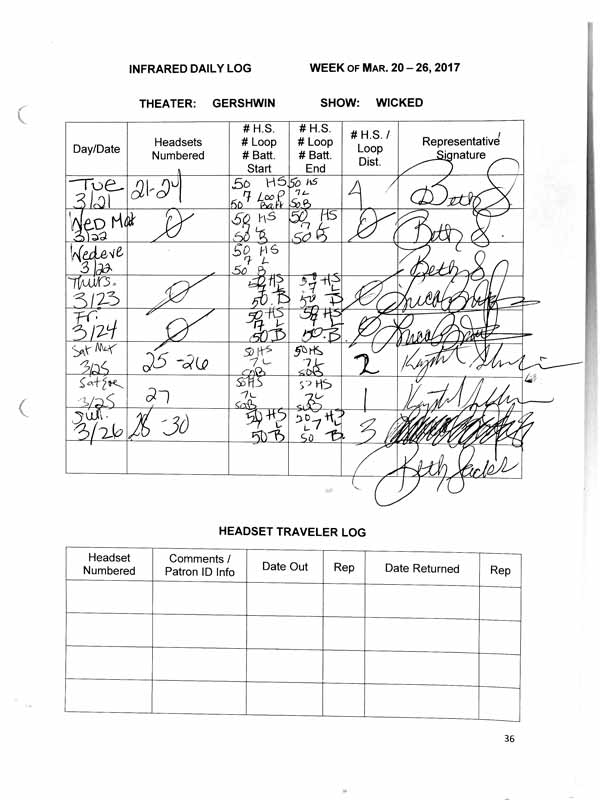 INFRARED DAILY LOG WEEK OF MAR. 20 – 26, 2017
THEATER: GERSHWIN SHOW: WICKED
Day/Date Headsets Numbered # H.S. # Loop # Batt. Start # H.S. # Loop # Batt. End # H.S. / Loop Dist. Representative Signature
Tue 3/21 21-24 50 HS 7 Loop 50 Batt 50 HS 7L 50B 4 Beth S.
Wed Mat 3/22 0 50 HS 7 L 50 B 50 HS 7L 50 B 0 Beth S.
Wed eve 3/22 50 HS 7 L 50 B Beth S.
Thurs. 3/23 0 50 HS 7 L 50 B 50 HS 7 L 50 B 0
Fri. 3/24 0 50 HS 7 L 50 B 50 HS 7 L 50 B 0
Sat Mat 3/25 25-26 50 HS 7L 50B 50 HS 7L 50B 2
Sat Eve 3/25 27 50HS 7L 50B 50 HS 7L 50B 1
Sun. 3/26 28-30 50 HS 7 L 50 B 50 HS 7 L 50 B 3
Beth Sacks
HEADSET TRAVELER LOG
Headset Numbered Comments / Patron ID Info Date Out Rep Date Returned Rep
36